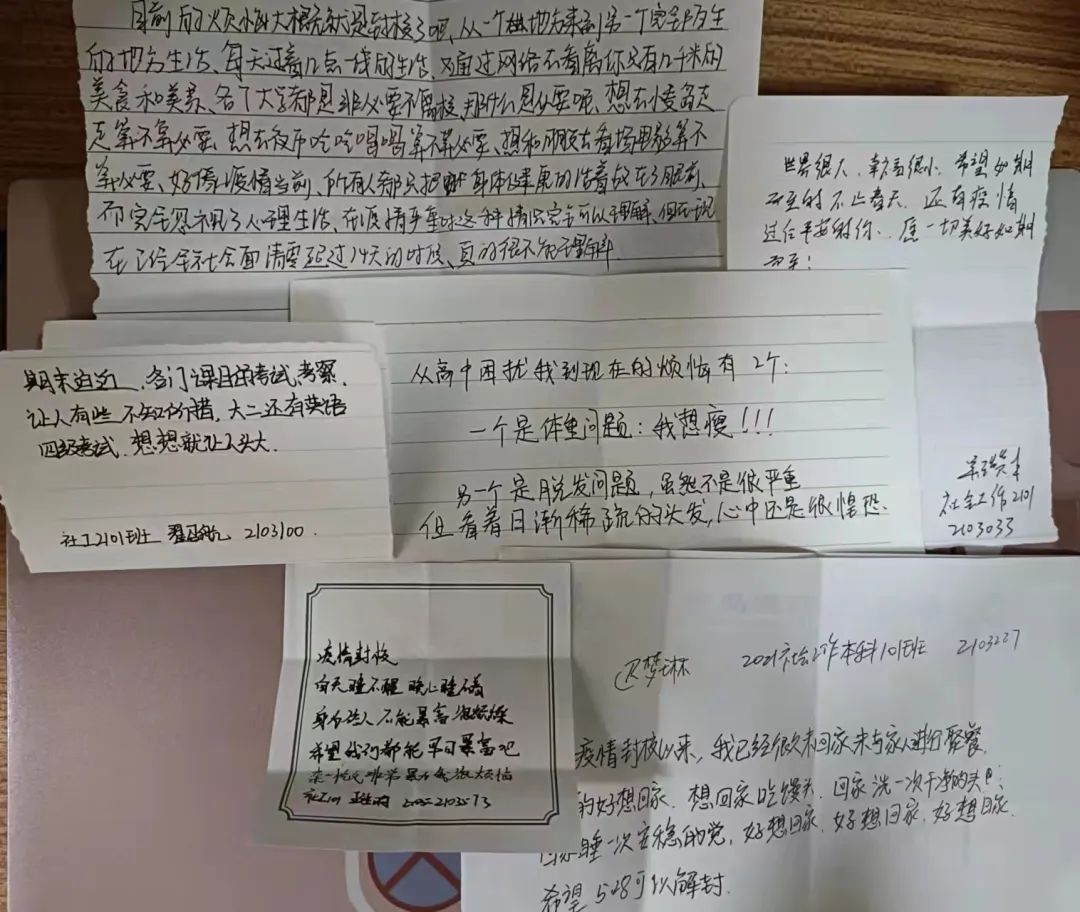 目前的烦恼大概就是封校了吧、从一个地方来到另一个完全陌生
的地方生活、每天过着几点一线的生活、又通过网络去看离你只有几千米的
美食和美景、各个大学都是非必要不离校、那什么是必要呢、想去凌多走
走算不算必要、想去夜市吃吃喝喝算不算必要、想和朋友去看场电影算不
算必要、好像疫情当前、所有人都只把身体健康的活着放在了眼前、
而完全忽视了人心理生活、在疫情严重时这种情况完全可以理解、但在现
在已经全社会面清零超过14天的时候、真的很不能理解
世界很大，幸福很小，希望如期
而至的不止春天，还有疫情
过后平安的你，愿一切美好如期
而至！
社会工作2101
2103033
期末迫近，各门课目的考试，考察，
让人有些不知所措，大二还有英语
四级考试，想想就让人头大.
社工2101班 2103100.
从高中困扰我到现在的烦恼有2个：
一个是体重问题：我想瘦！！！
另一个是脱发问题，虽然不是很严重
但看着日渐稀疏的头发，心中还是很惶恐.
疫情封校
白天睡不醒 晚上睡不着
希望我们都能早日暴富吧
梦琳 2021社会工作本科101班 2103227
疫情封校以来，我已经很久未回家未与家人进行聚餐
的好想回家，想回家吃馒头，回家洗一次干净的头巴；
回家睡一次安稳的觉，好想回家，好想回家，好想回家
希望5.28可以解封.